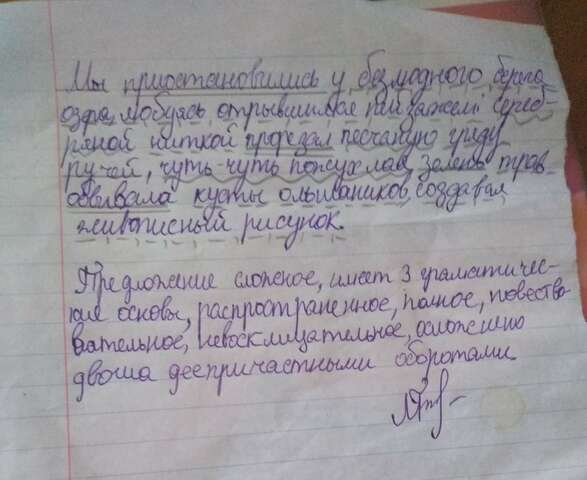 Мы приостановились у безмолвного берега
озра, мобуясь отрывшимся пейзажем: сереб-
ряной ниткой прорезал песчаную гряду
ручей, чуть-чуть пожухлая зелень трав
обвивала кусты ольшаников, создавая
живописный рисунок.
Предложение сложное, имеет 3 граматичес-
кие основы, распространенное, полное, повество-
вательное, невосклицательное, осложнено
двумя деепричастными оборотами